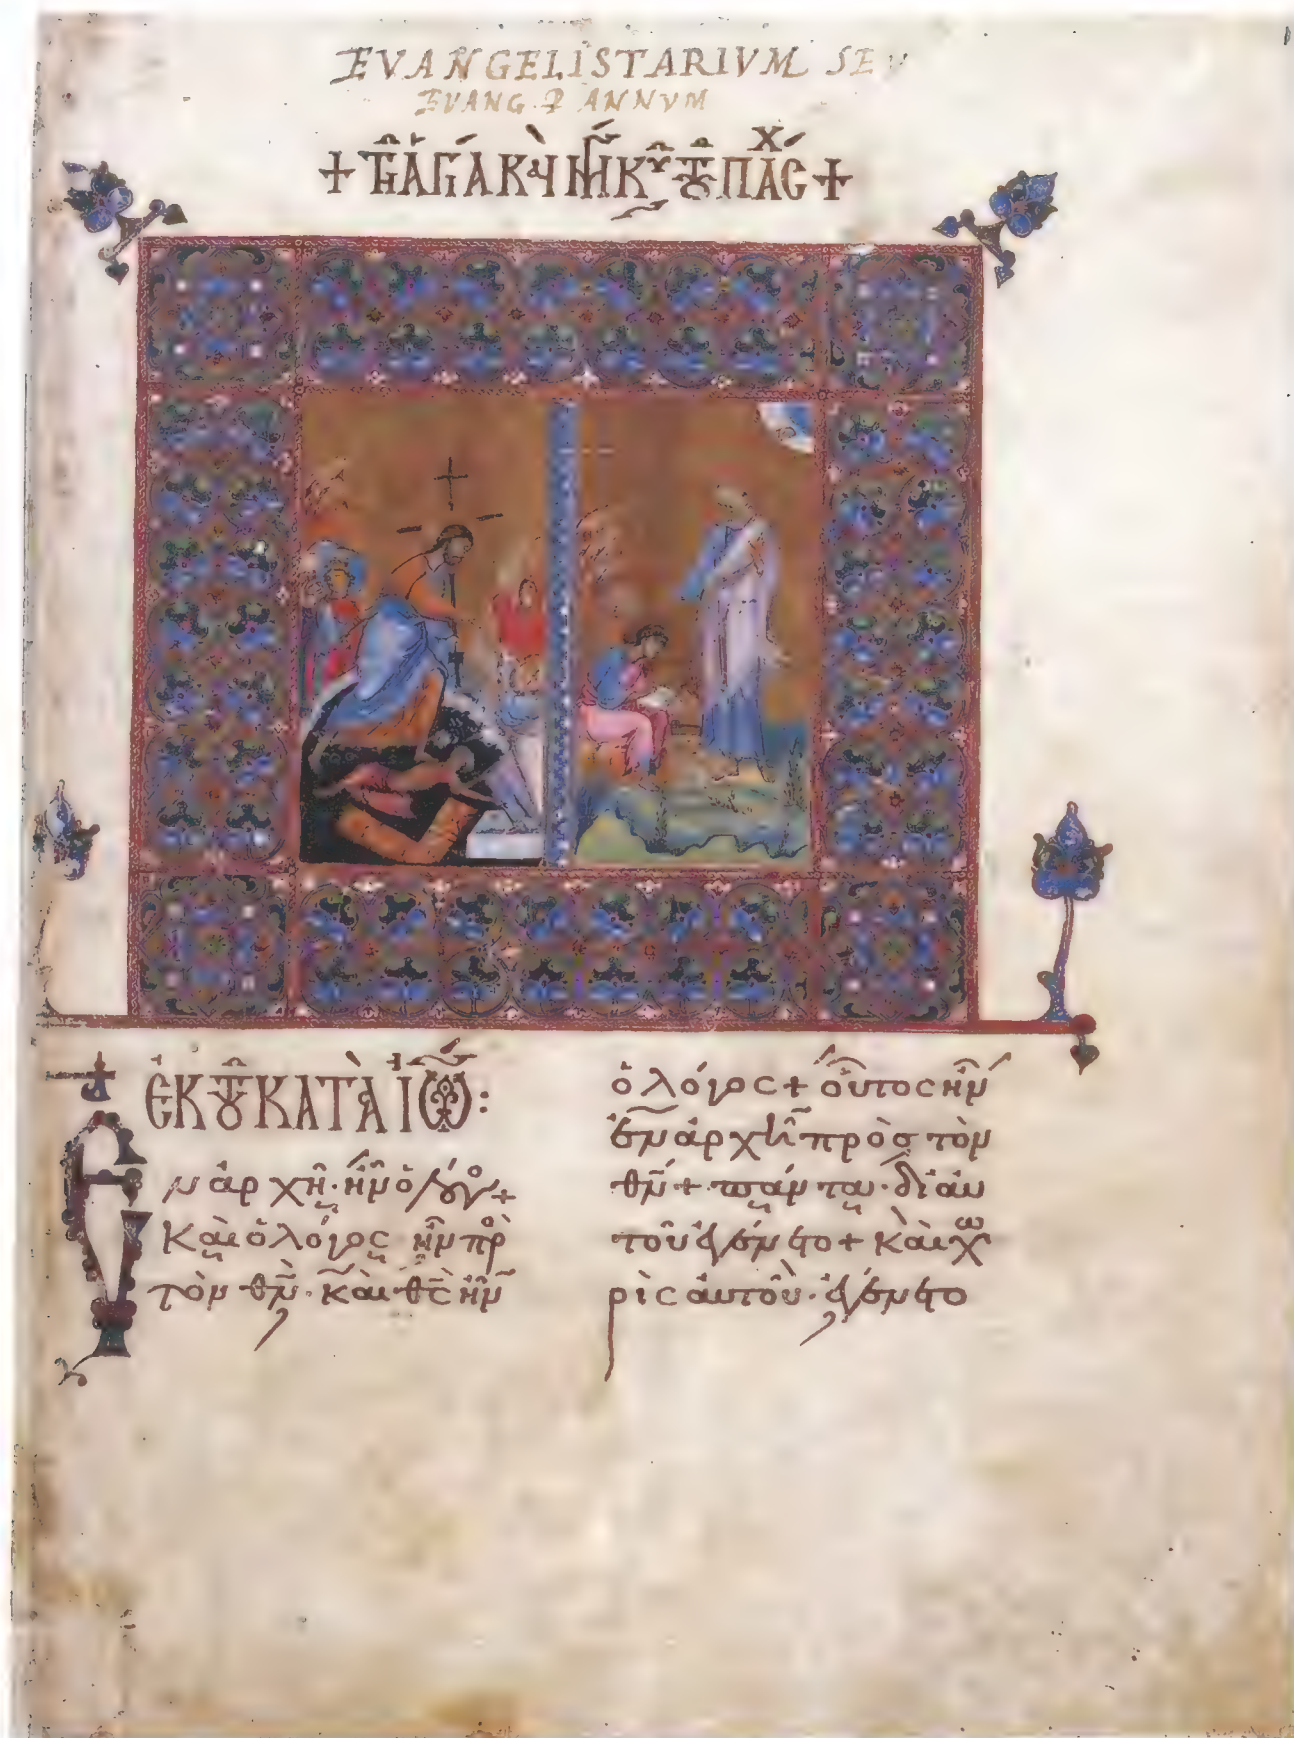 EVANGELISTARIVM SEV
EVANG. P ANNVM
+ ΤῌἉΓΊΑΚῪΜΓΚΥ͂ΤΟΥ͂ΠΆΣΧ +
ἘΚΤΟΥ͂ΚΑΤᾺἸΩ:
Ἐν ἀρχῆ· ἦν ὁ λόγος +
καὶ ὁ λόγος ἦν πρὸ
τὸν θν̅· καὶ θς̅ ἦν
ὁ λόγος + οὗτος ἦν
ἐν ἀρχῆ πρὸς τὸν
θν̅ + πάντα· δι αὐ
τοῦ ἐγένετο + καὶ χω
ρὶς αὐτοῦ· ἐγένετο